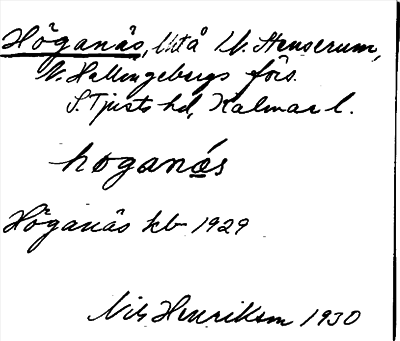 Höganäs, Utå U. Stenserum,
V. Hallingebergs förs.
S. Tjusts hd, Kalmar l.
hoganás
Höganäs kb 1929
Nils Henriksm 1930